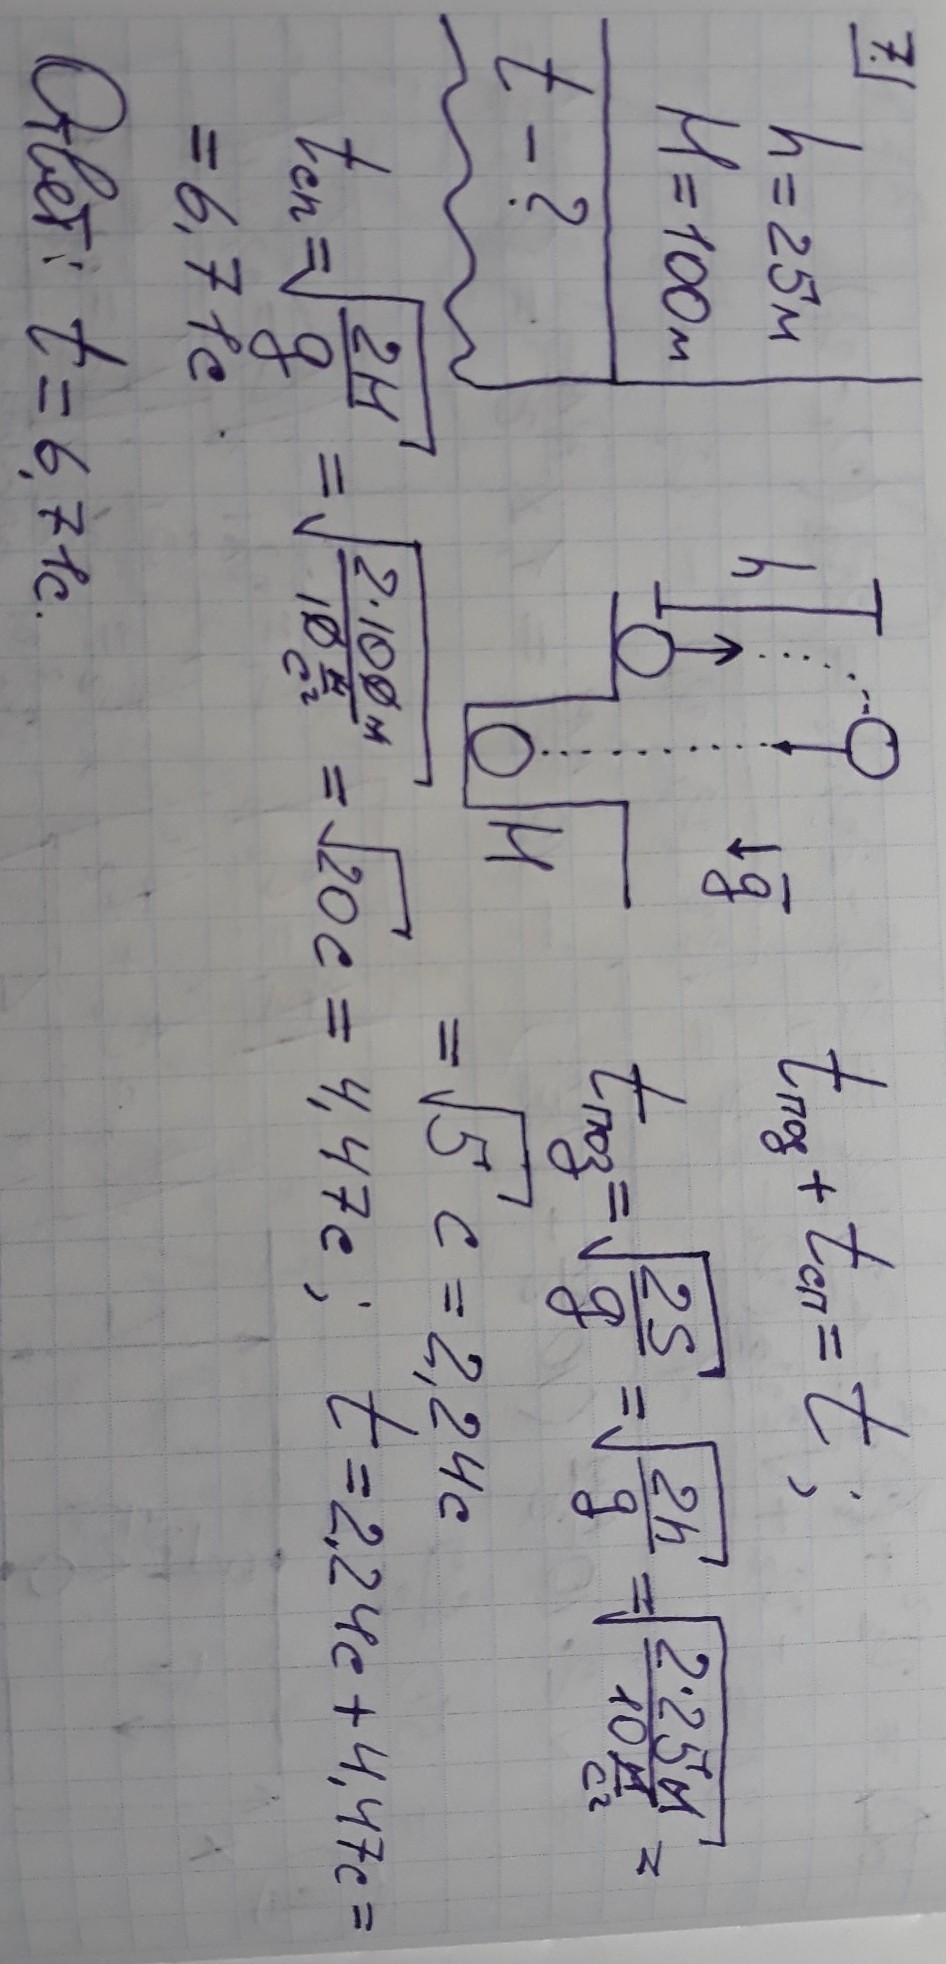 7.
h = 25м
H = 100м
t - ?
h
g
H
tпод + tсп = t;
tпод = √(2S/g) = √(2h/g) = √(2·25м/10 м/с²) =
= √5 с = 2,24с
tсп = √(2H/g) = √(2·100м/10 м/с²) = √20 с = 4,47с; t = 2,24с + 4,47с =
= 6,71с
Ответ: t = 6,71с.